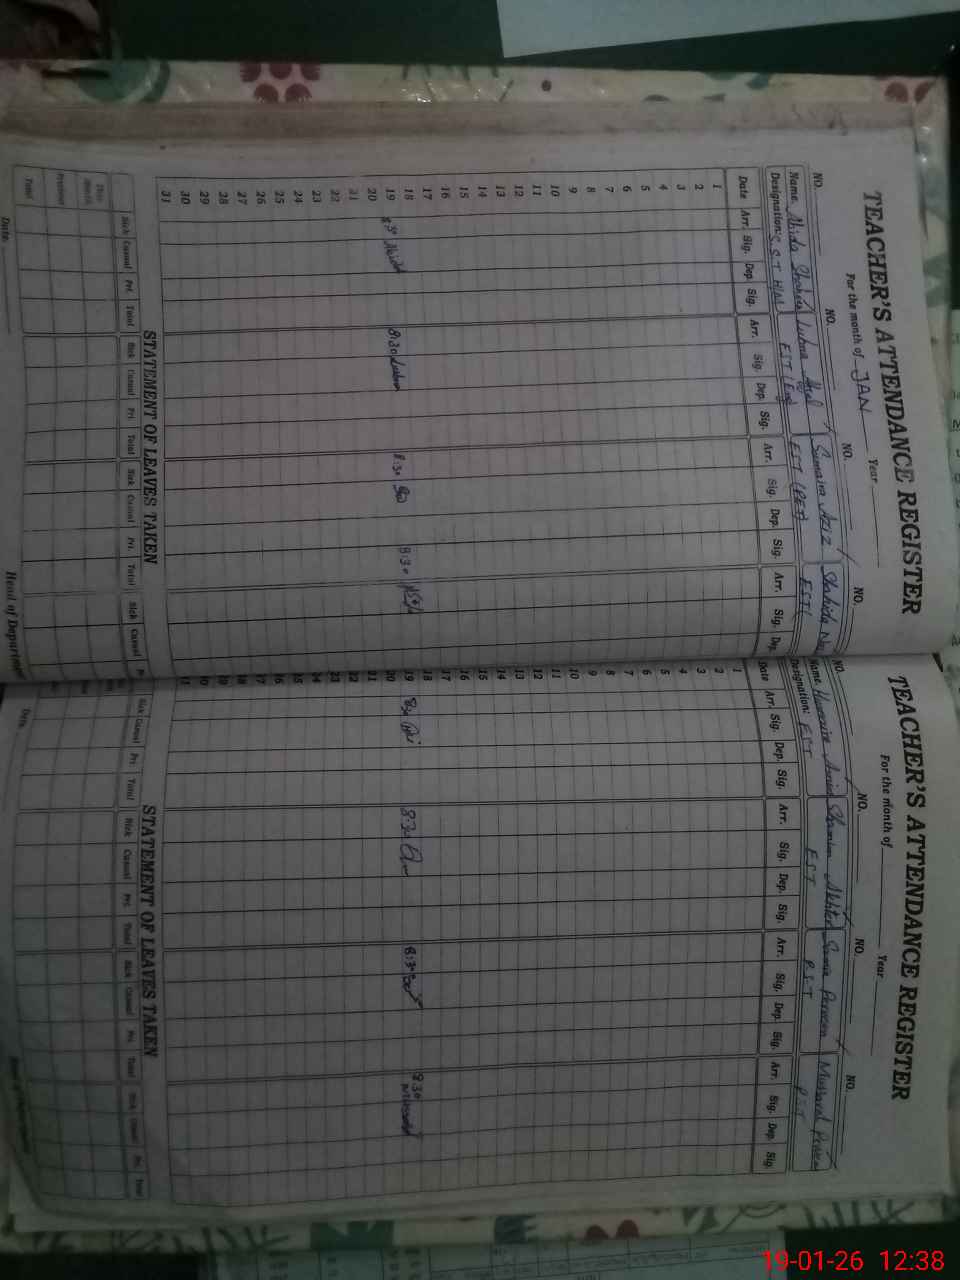 TEACHER'S ATTENDANCE REGISTER
For the month of JAN Year
NO. NO. NO. NO.
Name. Abida Shaheen Lubna Sumaira Aziz Shahida
Designation: S.S.T EST EST EST
Date Arr. Sig. Dep. Sig. Arr. Sig. Dep. Sig. Arr. Sig. Dep. Sig. Arr. Sig. Dep.
1
2
3
4
5
6
7
8
9
10
11
12
13
14
15
16
17
18
19 8:30 Abida 8:30 Lubna 8:30 8:30
20
21
22
23
24
25
26
27
28
29
30
31
STATEMENT OF LEAVES TAKEN
Sick Casual Pri. Total Sick Casual Pri. Total Sick Casual Pri. Total Sick Casual
This Month
Previous
Total
Date.
Head of Departme
TEACHER'S ATTENDANCE REGISTER
For the month of Year
NO. NO. NO. NO.
Name. Humaira Shamim Akhter Samia Parveen Musarat
Designation: EST EST P.S.T P.S.T
Date Arr. Sig. Dep. Sig. Arr. Sig. Dep. Sig. Arr. Sig. Dep. Sig. Arr. Sig. Dep. Sig.
1
2
3
4
5
6
7
8
9
10
11
12
13
14
15
16
17
18
19 8:30 8:30 8:30
20
21
22
23
24
25
26
27
28
29
30
31
STATEMENT OF LEAVES TAKEN
Sick Casual Pri. Total Sick Casual Pri. Total Sick Casual Pri. Total Sick Casual Pri. Total
Date.
19-01-26 12:38